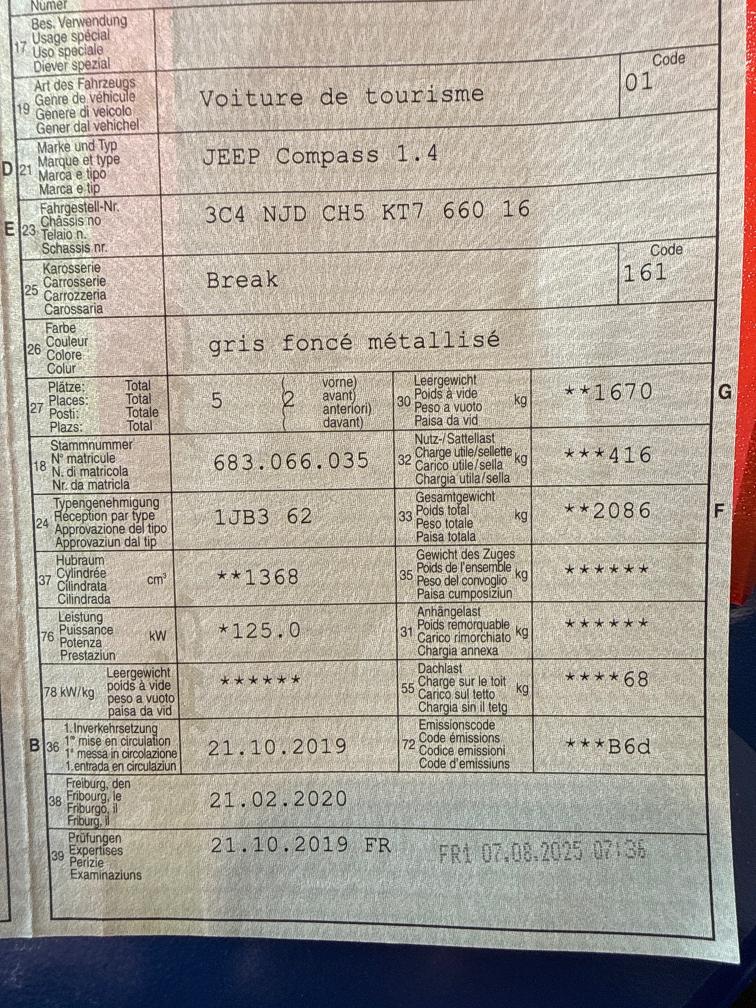 Numer
17 Bes. Verwendung
Usage spécial
Uso speciale
Diever spezial
19 Art des Fahrzeugs
Genre de véhicule
Genere di veicolo
Gener dal vehichel
Voiture de tourisme
Code
01
D 21 Marke und Typ
Marque et type
Marca e tipo
Marca e tip
JEEP Compass 1.4
E 23 Fahrgestell-Nr.
Châssis no
Telaio n.
Schassis nr.
3C4 NJD CH5 KT7 660 16
25 Karosserie
Carrosserie
Carrozzeria
Carossaria
Break
Code
161
26 Farbe
Couleur
Colore
Colur
gris foncé métallisé
27 Plätze: Total
Places: Total
Posti: Totale
Plazs: Total
5 2
vorne)
avant)
anteriori)
davant)
30 Leergewicht
Poids à vide
Peso a vuoto
Paisa da vid
kg
**1670
G
18 Stammnummer
N° matricule
N. di matricola
Nr. da matricla
683.066.035
32 Nutz-/Sattellast
Charge utile/sellette
Carico utile/sella
Chargia utila/sella
kg
***416
24 Typengenehmigung
Réception par type
Approvazione del tipo
Approvaziun dal tip
1JB3 62
33 Gesamtgewicht
Poids total
Peso totale
Paisa totala
kg
**2086
F
37 Hubraum
Cylindrée
Cilindrata
Cilindrada
cm³
**1368
35 Gewicht des Zuges
Poids de l'ensemble
Peso del convoglio
Paisa cumposiziun
kg
******
76 Leistung
Puissance
Potenza
Prestaziun
kW
*125.0
31 Anhängelast
Poids remorquable
Carico rimorchiato
Chargia annexa
kg
******
78 kW/kg
Leergewicht
poids à vide
peso a vuoto
paisa da vid
******
55 Dachlast
Charge sur le toit
Carico sul tetto
Chargia sin il tetg
kg
****68
B 36 1. Inverkehrsetzung
1re mise en circulation
1a messa in circolazione
1. entrada en circulaziun
21.10.2019
72 Emissionscode
Code émissions
Codice emissioni
Code d'emissiuns
***B6d
38 Freiburg, den
Fribourg, le
Friburgo, il
Friburg, il
21.02.2020
39 Prüfungen
Expertises
Perizie
Examinaziuns
21.10.2019 FR
FR1 07.08.2025 07:36